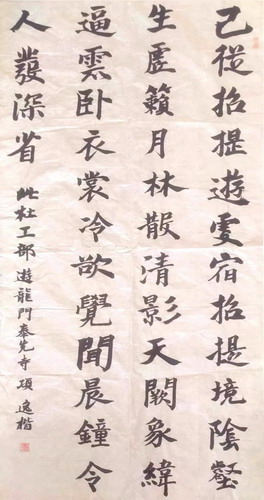 已從招提遊更宿招提境陰壑
生虛籟月林散清影天闕象緯
逼雲卧衣裳冷欲覺聞晨鐘令
人發深省
此杜工部遊龍門奉先寺 逸楷